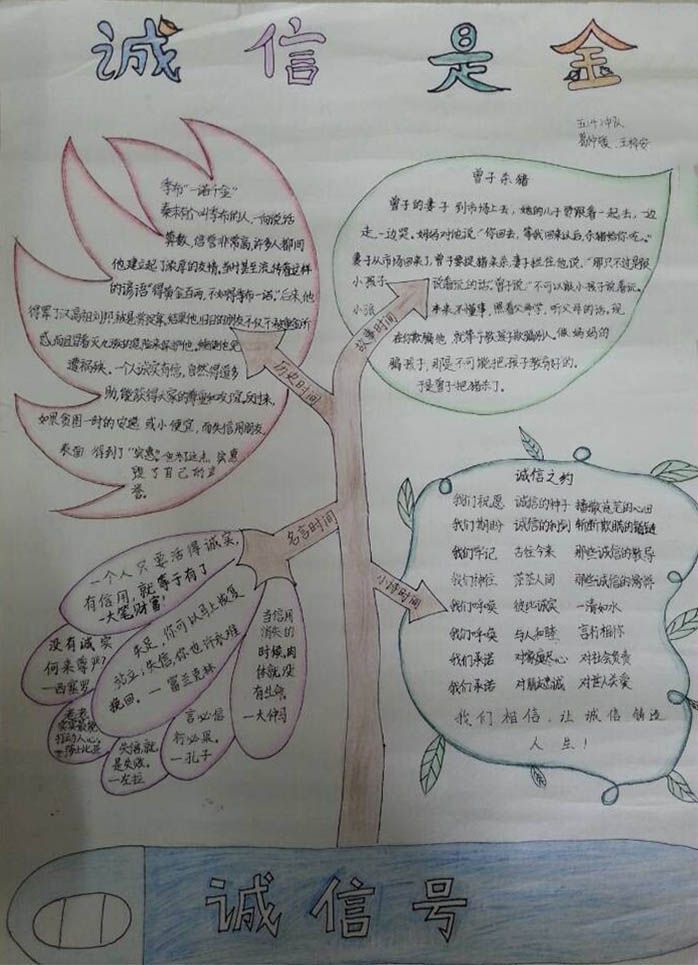 诚信是金
五4中队
季布"一诺千金"
秦末有个叫季布的人,一向说话
算数,信誉非常高,许多人都同
他建立起了浓厚的友情。当时甚至流传着这样
的谚语"得黄金百两,不如得季布一诺。"后来,他
得罪了汉高祖刘邦,被悬赏捉拿。结果他旧日的朋友不仅不被重金所
惑,而且冒着灭九族的危险来保护他,
遭祸殃。一个人诚实有信,自然得道多
助,能获得大家的尊重和友谊。反过来,
如果贪图一时的安逸或小便宜,而失信于朋友
表面得到了"实惠"。但为了这点实惠
毁了自己的声
誉。
历史时间
曾子杀猪
曾子的妻子到市场上去,她的儿子要跟着一起去,一边
走,一边哭。妈妈对他说:"你回去,等我回来以后,杀猪给你吃。"
妻子从市场回来了,曾子要捉猪来杀,妻子拦住他说:"那只不过是跟
小孩子说着玩的话。"曾子说:"不可以跟小孩子说着玩。
小孩本来不懂事,照着父母学,听父母的话,现
在你欺骗他,就等于教孩子欺骗别人。做妈妈的
骗孩子,那是不可能把孩子教育好的。
于是曾子把猪杀了。
故事时间
名言时间
一个人只要活得诚实,
有信用,就等于有了
一大笔财富!
失足,你可以马上恢复
站立;失信,你也许永难
挽回。—富兰克林
当信用
消失的
时候,肉
体就没
有生命。
—大仲马
没有诚实
何来尊严?
—西塞罗
打动人心。
—莎士比亚
失信就
是失败。
—左拉
言必信
行必果。
—孔子
小诗时间
诚信之约
我们祝愿 诚信的种子 播撒荒芜的心田
我们期盼 诚信的利剑 斩断欺瞒的锁链
我们牢记 古往今来 那些诚信的教导
我们神往 茫茫人间 那些诚信的
我们呼唤 彼此诚实 一清如水
我们呼唤 与人和睦 言行相顾
我们承诺 对家庭尽心 对社会负责
我们承诺 对朋友忠诚 对世人关爱
我们相信,让诚信铸造
人生!
诚信号